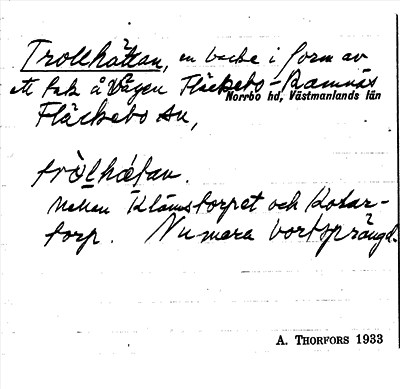 Trollhättan, en backe i form av
ett tak å vägen Fläckebo-Ramnäs
Norrbo hd, Västmanlands län
Fläckebo sn,
tròlhætan.
Mellan Klämstorpet och Kolar-
torp. Numera bortsprängd.
A. THORFORS 1933